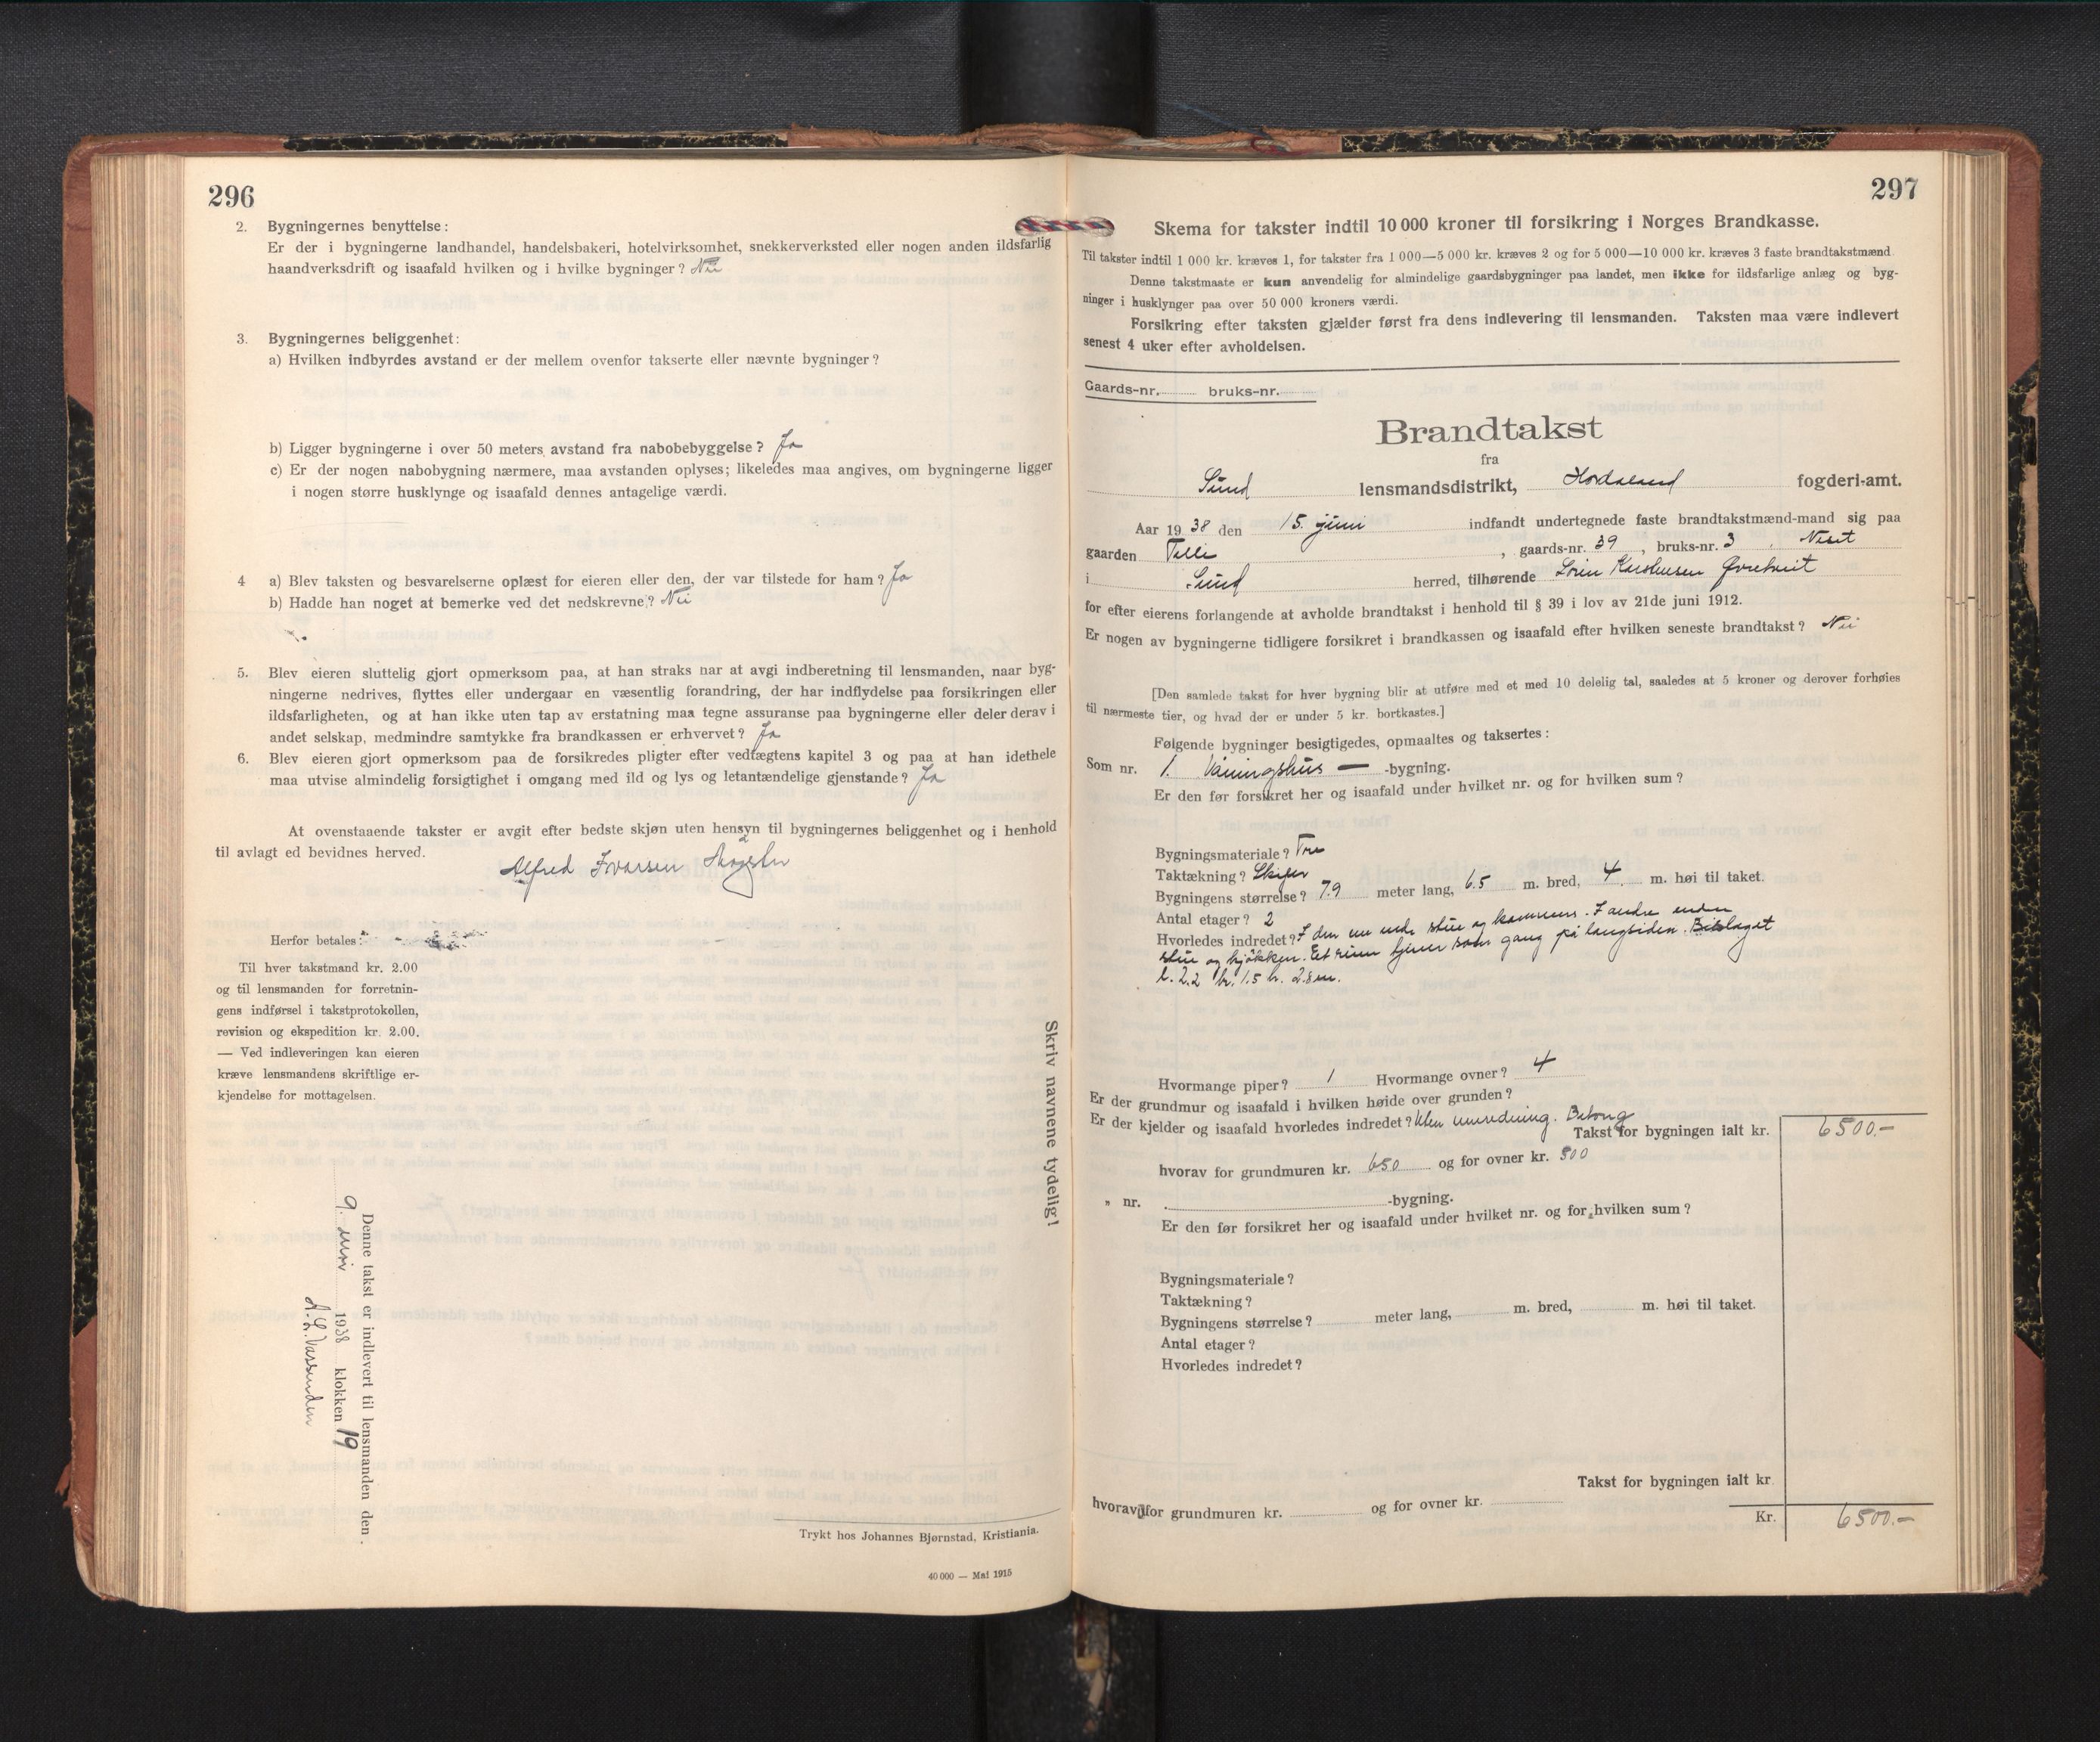 296
2. Bygningernes benyttelse:
Er der i bygningerne landhandel, handelsbakeri, hotelvirksomhet, snekkerverksted eller nogen anden ildsfarlig
haandverksdrift og isaafald hvilken og i hvilke bygninger? Nei
3. Bygningernes beliggenhet:
a) Hvilken indbyrdes avstand er der mellem ovenfor takserte eller nævnte bygninger?
b) Ligger bygningerne i over 50 meters avstand fra nabobebyggelse? Ja
c) Er der nogen nabobygning nærmere, maa avstanden oplyses; likeledes maa angives, om bygningerne ligger
i nogen større husklynge og isaafald dennes antagelige værdi.
4 a) Blev taksten og besvarelserne oplæst for eieren eller den, der var tilstede for ham? Ja
b) Hadde han noget at bemerke ved det nedskrevne? Nei
5. Blev eieren sluttelig gjort opmerksom paa, at han straks har at avgi indberetning til lensmanden, naar byg-
ningerne nedrives, flyttes eller undergaar en væsentlig forandring, der har indflydelse paa forsikringen eller
ildsfarligheten, og at han ikke uten tap av erstatning maa tegne assuranse paa bygningerne eller deler derav i
andet selskap, medmindre samtykke fra brandkassen er erhvervet? Ja
6. Blev eieren gjort opmerksom paa de forsikredes pligter efter vedtægtens kapitel 3 og paa at han idethele
maa utvise almindelig forsigtighet i omgang med ild og lys og letantændelige gjenstande? Ja
At ovenstaaende takster er avgit efter bedste skjøn uten hensyn til bygningernes beliggenhet og i henhold
til avlagt ed bevidnes herved.
Alfred Ivarsen
Herfor betales:
Til hver takstmand kr. 2.00
og til lensmanden for forretnin-
gens indførsel i takstprotokollen,
revision og ekspedition kr. 2.00.
— Ved indleveringen kan eieren
kræve lensmandens skriftlige er-
kjendelse for mottagelsen.
Denne takst er indlevert til lensmanden den
9. juni 1938 klokken 19
A. L. Vassenden
Skriv navnene tydelig!
Trykt hos Johannes Bjørnstad, Kristiania.
40 000 — Mai 1915
297
Skema for takster indtil 10 000 kroner til forsikring i Norges Brandkasse.
Til takster indtil 1 000 kr. kræves 1, for takster fra 1 000—5 000 kr. kræves 2 og for 5 000—10 000 kr. kræves 3 faste brandtakstmænd
Denne takstmaate er kun anvendelig for almindelige gaardsbygninger paa landet, men ikke for ildsfarlige anlæg og byg-
ninger i husklynger paa over 50 000 kroners værdi.
Forsikring efter taksten gjælder først fra dens indlevering til lensmanden. Taksten maa være indlevert
senest 4 uker efter avholdelsen.
Gaards-nr. bruks-nr.
Brandtakst
fra
Sund lensmandsdistrikt, Hordaland fogderi-amt.
Aar 1938 den 15. juni indfandt undertegnede faste brandtakstmænd-mand sig paa
gaarden Telle, gaards-nr. 39, bruks-nr. 3.
i Sund herred, tilhørende Øvretveit
for efter eierens forlangende at avholde brandtakst i henhold til § 39 i lov av 21de juni 1912.
Er nogen av bygningerne tidligere forsikret i brandkassen og isaafald efter hvilken seneste brandtakst? Nei
[Den samlede takst for hver bygning blir at utføre med et med 10 delelig tal, saaledes at 5 kroner og derover forhøies
til nærmeste tier, og hvad der er under 5 kr. bortkastes.]
Følgende bygninger besigtigedes, opmaaltes og taksertes:
Som nr. 1. Våningshus — -bygning.
Er den før forsikret her og isaafald under hvilket nr. og for hvilken sum?
Bygningsmateriale? Tre
Taktækning? Skifer
Bygningens størrelse? 7.9 meter lang, 6.5 m. bred, 4 m. høi til taket.
Antal etager? 2
Hvorledes indredet? I den ene ende stue og kammers. I andre enden
stue og kjøkken. Et rum tjener som gang på langsiden. Bislaget
l. 2.2 br. 1.5 h. 2.8 m.
Hvormange piper? 1 Hvormange ovner? 4
Er der grundmur og isaafald i hvilken høide over grunden?
Er der kjelder og isaafald hvorledes indredet? Uten innredning. Betong
Takst for bygningen ialt kr. 6500.-
hvorav for grundmuren kr. 650 og for ovner kr. 300
„ nr. -bygning.
Er den før forsikret her og isaafald under hvilket nr. og for hvilken sum?
Bygningsmateriale?
Taktækning?
Bygningens størrelse? meter lang, m. bred, m. høi til taket.
Antal etager?
Hvorledes indredet?
Takst for bygningen ialt kr.
hvorav for grundmuren kr. og for ovner kr.
Kr. 6500.-